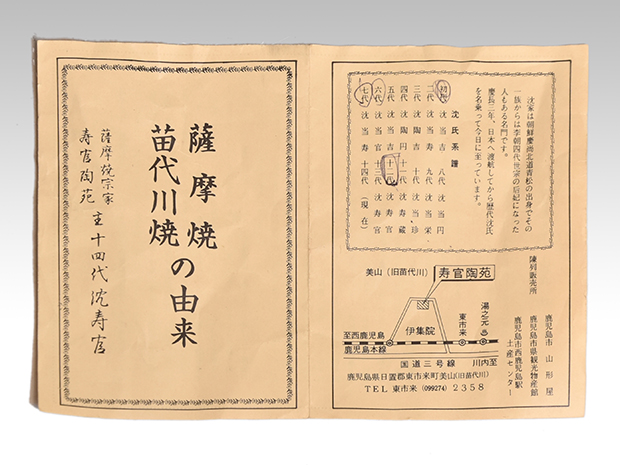 薩摩焼
苗代川焼の由来
薩摩焼宗家
寿官陶苑 主十四代沈寿官
沈家は朝鮮慶尚北道青松の出身でその
一族からは李朝四代世宗の后妃になった
人もある名門です。
慶長三年、日本へ渡航してから歴代沈氏
を名乗って今日に至っています。
沈氏系譜
初代 沈当吉 八代 沈当円
二代 沈当寿 九代 沈当栄
三代 沈陶吉 十代 沈当珍
四代 沈陶円 十一代 沈寿蔵
五代 沈当吉 十二代 沈寿官
六代 沈当官 十三代 沈寿官
七代 沈当寿 十四代 (現在)
陳列販売所
鹿児島市 山形屋
鹿児島市県観光物産館
鹿児島市西鹿児島駅
土産センター
美山(旧苗代川)
寿官陶苑
伊集院
東市来
湯之元
至西鹿児島
鹿児島本線
国道三号線
川内至
鹿児島県日置郡東市来町美山(旧苗代川)
TEL 東市来 (099274) 2358